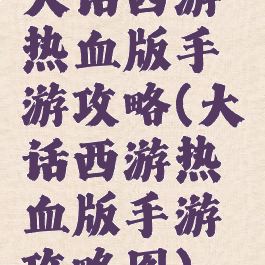 大话西游
热血版手
游攻略(大
话西游热
血版手游
攻略图)